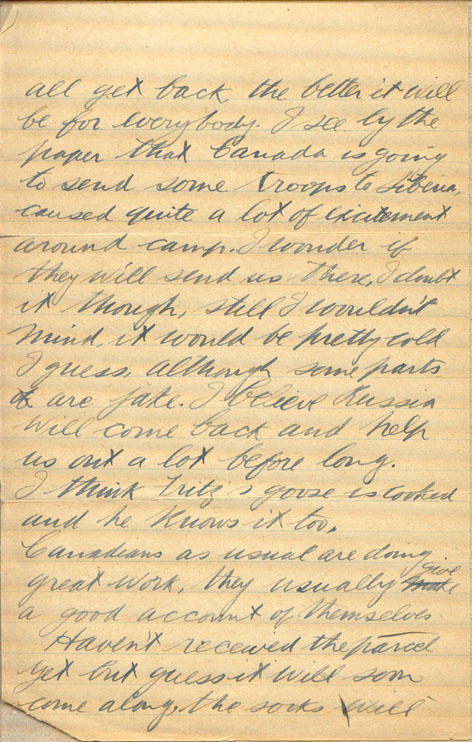 all get back, the better it will
be for everybody. I see by the
paper that Canada is going
to send some troops to Siberia,
caused quite a lot of excitement
around camp. I wonder if
they will send us there, I doubt
it though, still I wouldn't
mind, it would be pretty cold
I guess, although some parts
are jake. I believe Russia
will come back and help
us out a lot before long.
I think Fritz's goose is cooked
and he knows it too.
Canadians as usual are doing
great work, they usually give
a good account of themselves
Haven't received the parcel
yet but guess it will soon
come along, the socks will